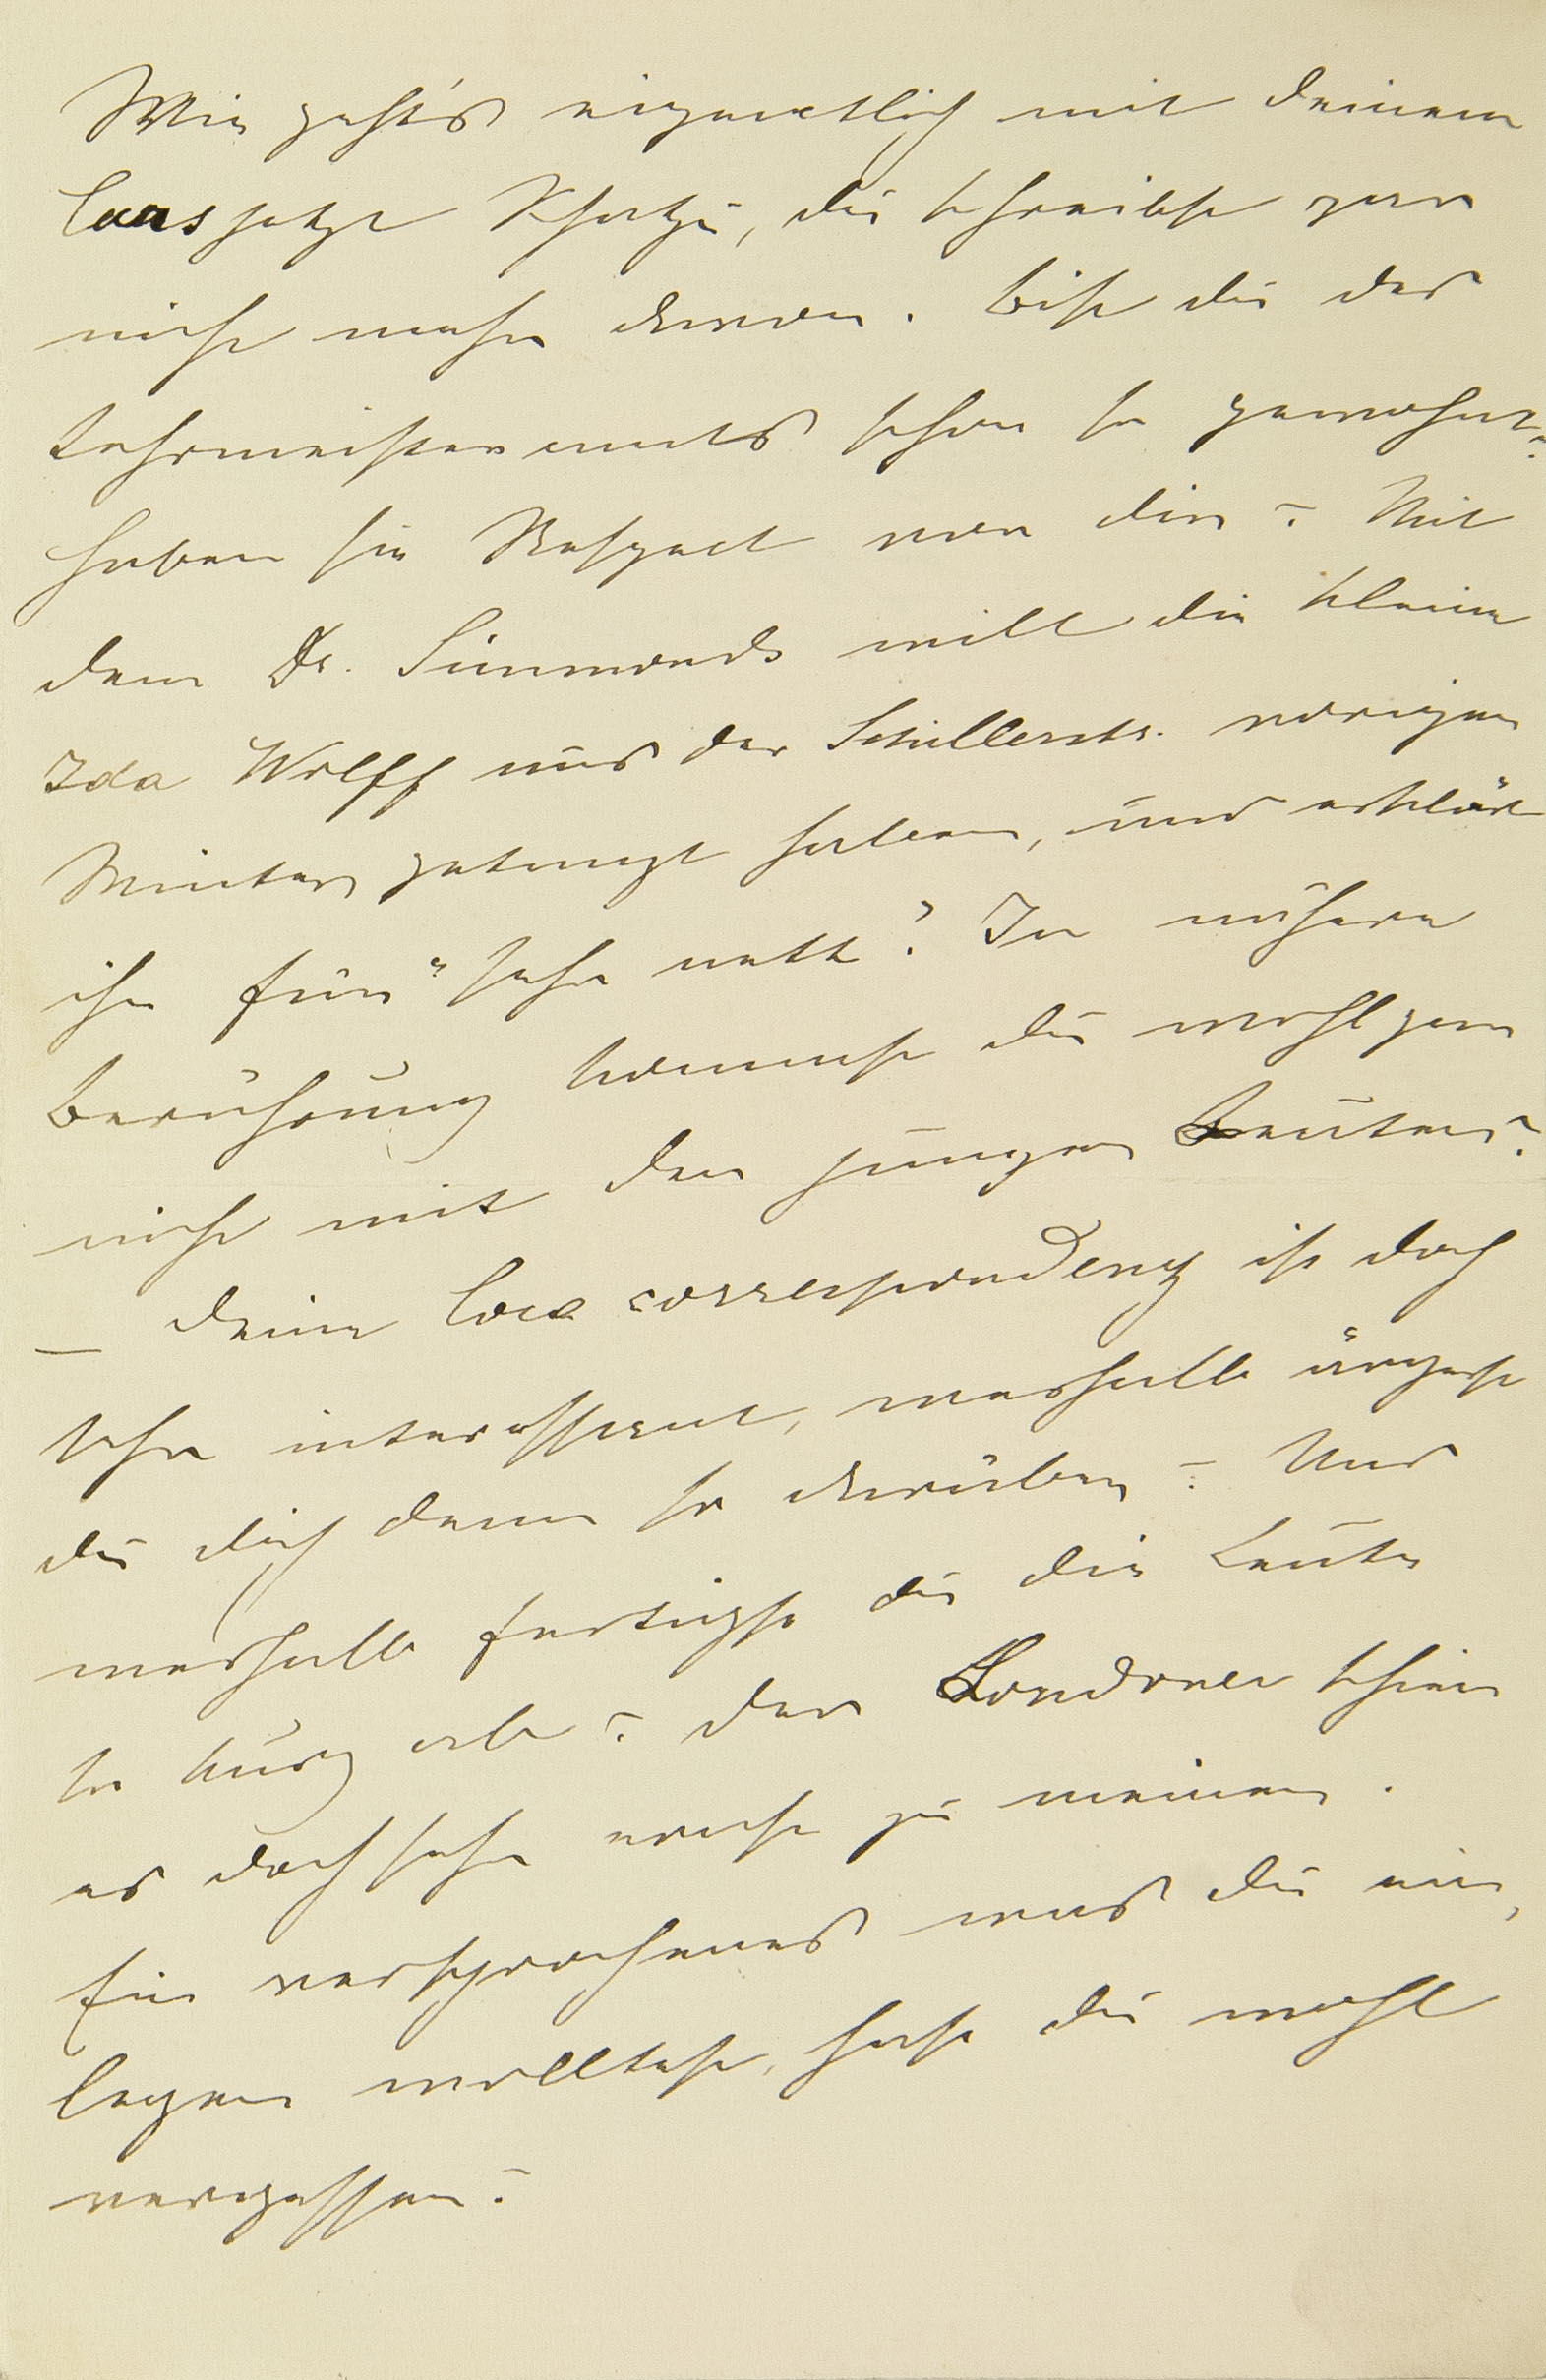 Wie geht's eigentlich mit Deinem
Curs jetzt Schatzi, du schreibst gar
nicht mehr davon. Bist du des
Lehrmeisteramts schon so gewohnt?
haben sie Respect von dir? Mit
dem Dr. Simmonds will die kleine
Ida Wolff aus der Schillerstr. vorigen
Winter getanzt haben, und erklärt
ihn für "sehr nett"? In nähere
Berührung kommst du wohl gar
nicht mit den jungen Leuten?
– Deine correspondenz ist doch
sehr interessant, weshalb ärgerst
du dich denn so darüber? Und
weshalb fertigst du die Leute
so kurz ab? Der Londoner schien
es doch sehr ernst zu meinen.
Ein versprochenes was du ein,
legen wolltest, hast du wohl
vergessen?